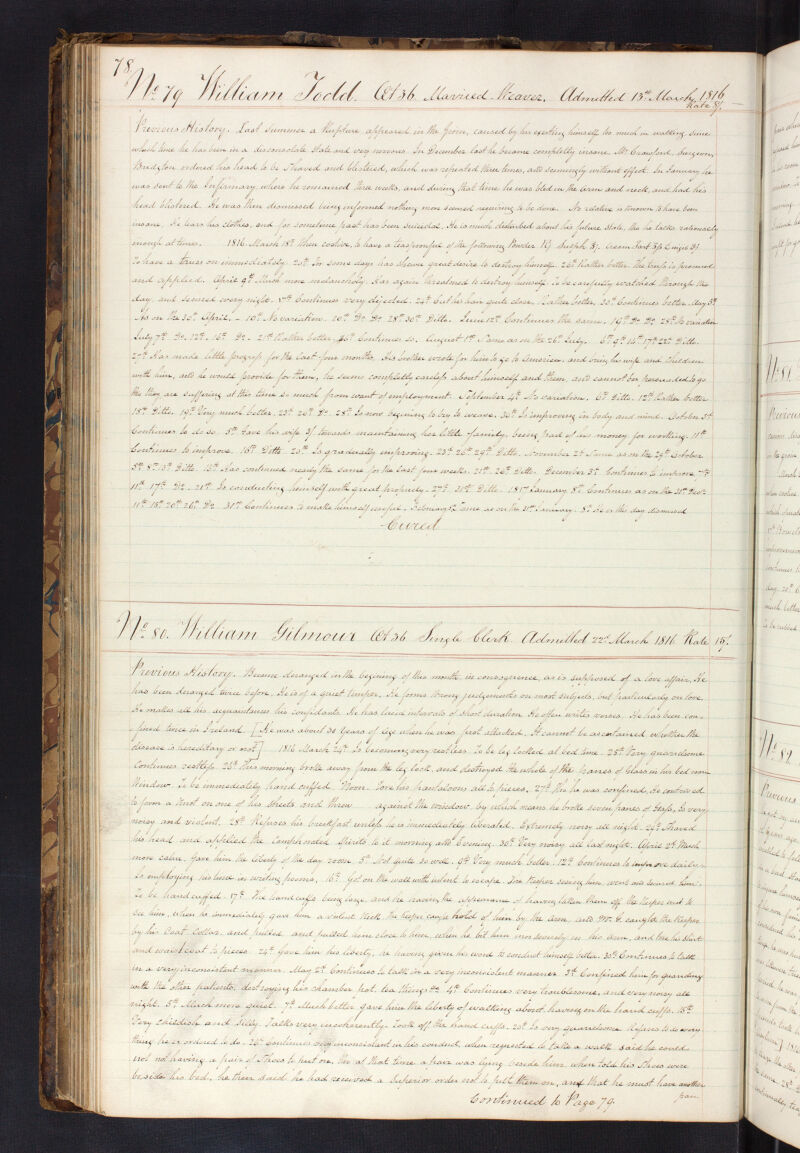 78
No. 79 William Todd. Æt 36 Married Weaver. Admitted 13th March 1816
Rate 8/.
Previous History. Last summer a Rupture appeared in the Groin, caused by his exerting himself too much in walking since
which time he has been in a disconsolate State and very nervous. In December last he became completely insane. Mr Crawford, Surgeon,
ordered his head to be Shaved and blistered, which was repeated three times, and seemingly without effect. In January he
was sent to the Infirmary where he remained three weeks, and during that time he was bled in the Arm and neck, and had his
head blistered. He was then dismissed being informed nothing more seemed requiring to be done. No relative is known to have been
insane. He tears his clothes, and for sometime past has been suicidal. He is much disturbed about his future State, tho he talks rationally
enough at times. 1816 March 18th When costive, to have a teaspoonful of the following Powder
To have a truss on immediately. 20th For some days has shewn great desire to destroy himself. 26th Rather better. The truss is procured
and applied. April 9th Much more melancholy. Has again threatened to destroy himself. To be carefully watched through the
day, and secured every night. 17th Continues very dejected. 24th Cut his hair quite close. Rather better. 30th Continues better. May 5th
As on the 30th April. 10th No variation. 20th Do Do 28th 30th Ditto. June 12th Continues the same. 19th Do Do 28th No variation
July 7th Do. 12th 16th Do. 21st Rather better. 26th Continues so. August 1st Same as on the 26th July. 6th 9th 14th 17th 22d Ditto.
27th Has made little progress for the last four months. His brother wrote for him to go to America, and bring his wife and Children
with him, and he would provide for them, he seems completely careless about himself and them, and cannot be persuaded to go
tho they are suffering at this time so much from want of employment. September 4th No variation. 6th Ditto. 12th Rather better
18th Ditto. 19th Very much better. 23d 26th Do. 28th Is now beginning to try to weave. 30th Is improving in body and mind. October 3d
Continues to do so. 5th Gave his wife 3/ towards maintaining her little family, being part of his money for working. 11th
Continues to improve. 16th Ditto. 20th Is gradually improving. 23d 26th 29th Ditto. November 2d Same as on the 29th October
5th 8th 13th Ditto. 15th Has continued nearly the same for the last four weeks. 21st 26th Ditto. December 3d Continues to improve 7th
11th 17th Do. 21st Is conducting himself with great propriety. 27th 31st Ditto. 1817 January 8th Continues as on the 21st Decr.
11th 16th 20th 26th Do 31st Continues to make himself useful. February 3d Same as on the 31st January. 8th He is this day dismissed
Cured
No. 80. William Gilmour Æt 36 Single Clerk Admitted 22d March 1816 Rate 15/.
Previous History. Became deranged in the begining of this month, in consequence, as is supposed of a love affair. He
has been deranged twice before. He is of a quiet temper. He forms wrong judgements on most subjects, but particularly on love.
He makes all his acquaintances his confidants. He has lucid intervals of short duration. He often writes verses. He has been con-
fined twice in Ireland. [He was about 31 Years of age when he was first attacked. It cannot be ascertained whether the
disease is hereditary or not] 1816 March 24th Is becoming very restless. To be leg locked at bed time. 25th Very quarrelsome
Continues restless. 26th This morning broke away from the leg lock, and destroyed the whole of the panes of Glass in his bed room
Window. To be immediately hand cuffed. Noon. Tore his pantaloons all to pieces. 27th Tho he was confined, he contrived
to form a Knot on one of his Sheets and threw against the window by which means he broke seven panes of Glass. Is very
noisy and violent. 28th Refuses his breakfast unless he is immediately liberated. Extremely noisy all night. 29th Shaved
his head and applied the Camphorated Spirits to it morning and Evening. 30th Very noisy all last night. April 2d Much
more calm. Gave him the liberty of the day room. 5th Not quite so well. 9th Very much better. 12th Continues to improve daily.
Is employing his time in writing poems. 16th Got on the wall with intent to escape. The Keeper seeing him, went and secured him.
To be handcuffed. 17th The handcuffs being large, and he having the appearance of having taken them off the Keeper went to
see him, when he immediately gave him a violent Kick. The Keeper caught hold of him by the Arm, and Mr G. caught the Keeper
by his Coat Collar, and pulled and pulled him close to him, when he bit him very severely in his arm, and tore his Shirt
and waistcoat to pieces. 24th Gave him his liberty, he having given his word to conduct himself better. 30th Continues to talk
in a very inconsistent manner. May 2d Continues to talk in a very inconsistent manner. 3d Confined him for quarrelling
with the other patients, destroying his chamber pot, tea things &c. 4th Continues very troublesome, and very noisy all
night. 5th Much more quiet. 7th Much better gave him the liberty of walking about, having on the hand cuffs. 15th
Very childish and Silly. Talks very incoherently. Took off the hand cuffs. 20th Is very quarrelsome. Refuses to do every
thing he is ordered to do. 26th Continues very inconsistent in his conduct, when requested to take a walk said he could
not not having a pair of Shoes to put on, tho at that time a pair was lying beside him, when told his Shoes were
beside his bed, he then said he had received a Superior order not to put them on, and that he must have another
pair
Continued to Page 79.
No. 81
No. 82